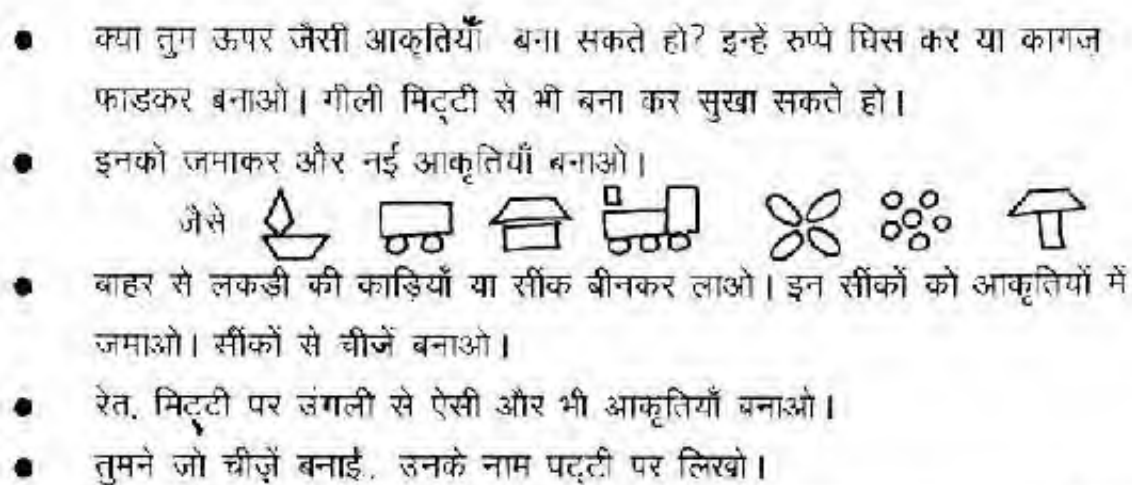 ● क्या तुम ऊपर जैसी आकृतियाँ बना सकते हो? इन्हें रुप्पे घिस कर या कागज़
फाडकर बनाओ। गीली मिट्टी से भी बना कर सुखा सकते हो।
● इनको जमाकर और नई आकृतियाँ बनाओ।
जैसे
● बाहर से लकडी की काड़ियाँ या सींक बीनकर लाओ। इन सींकों को आकृतियों में
जमाओ। सींकों से चीजें बनाओ।
● रेत, मिट्टी पर उंगली से ऐसी और भी आकृतियाँ बनाओ।
● तुमने जो चीज़ें बनाईं, उनके नाम पट्टी पर लिखो।